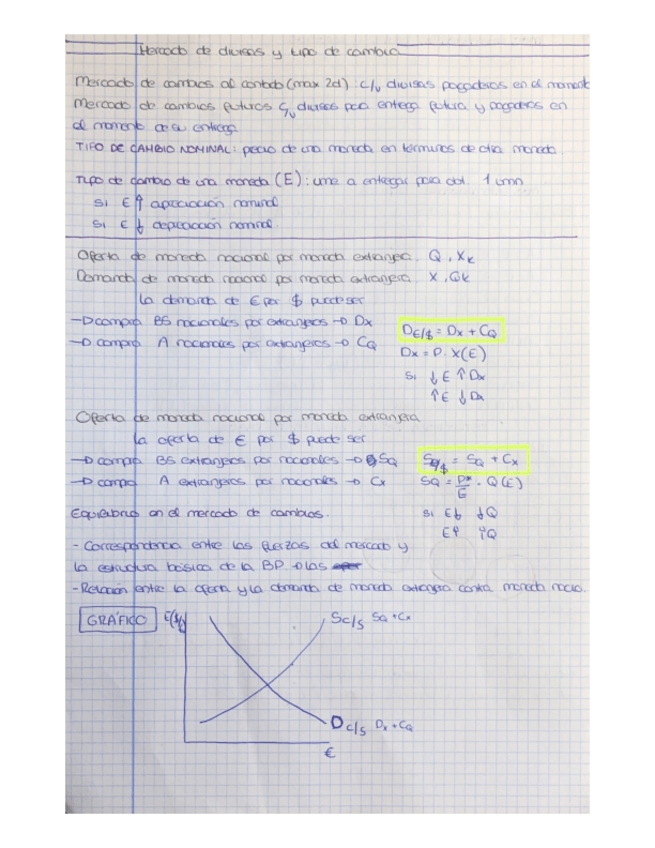 Mercado de divisas y tipo de cambio
Mercado de cambios al contado (max 2d) : c/v divisas pagaderos en el momento
Mercado de cambios futuros c/v divisas para entrega futura y pagaderos en
el momento de su entrega
TIPO DE CAMBIO NOMINAL: precio de una moneda en términos de otra moneda.
Tipo de cambio de una moneda (E) : ume a entregar para obt 1 umn
Si E ↑ apreciación nominal
Si E ↓ depreciación nominal
Oferta de moneda nacional por moneda extranjera. Q , XK
Demanda de moneda nacional por moneda extranjera X , QK
La demanda de € por $ puede ser
→ compra BS nacionales por extranjeros → Dx
→ compra A nacionales por extranjeros → CQ
D€/$ = Dx + CQ
Dx = P · X(E)
Si ↓E ↑Dx
↑E ↓Dx
Oferta de moneda nacional por moneda extranjera
La oferta de € por $ puede ser
→ compra BS extranjeros por nacionales → SQ
→ compra A extranjeros por nacionales → Cx
S€/$ = SQ + Cx
SQ = P*/E · Q(E)
Si E↓ ↓Q
E↑ ↑Q
Equilibrio en el mercado de cambios.
- Correspondencia entre las fuerzas del mercado y
la estructura básica de la BP → las
- Relación entre la oferta y la demanda de moneda extranjera contra moneda nacio.
GRÁFICO
E($/€)
S€/$ SQ + Cx
D€/$ Dx + CQ
€